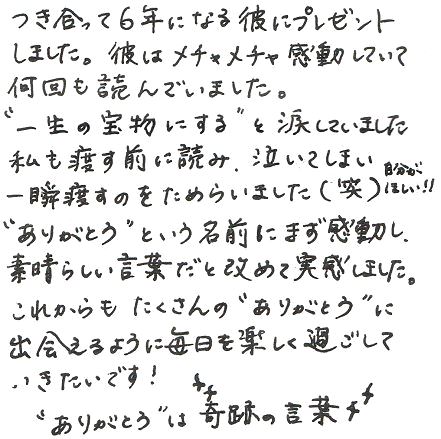 つき合って6年になる彼にプレゼント
しました。彼はメチャメチャ感動していて
何回も読んでいました。
"一生の宝物にする"と涙していました
私も渡す前に読み、泣いてしまい
一瞬渡すのをためらいました(笑)自分がほしい!!
"ありがとう"という名前にまず感動し、
素晴らしい言葉だと改めて実感しました。
これからもたくさんの"ありがとう"に
出会えるように毎日を楽しく過ごして
いきたいです!
"ありがとう"は奇跡の言葉